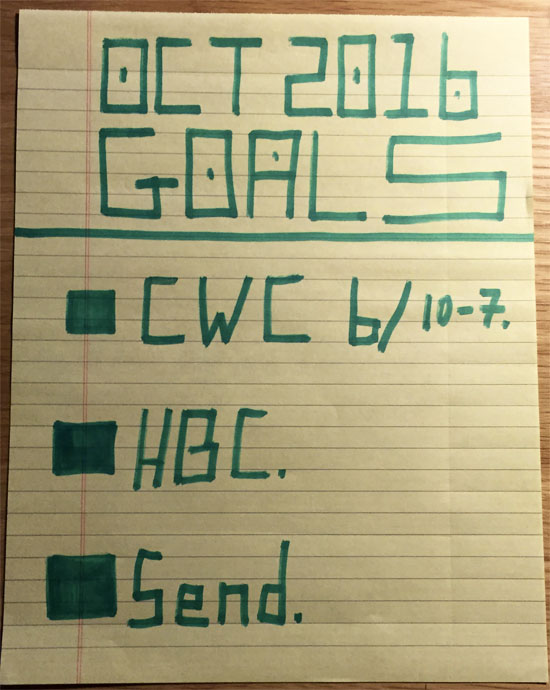 OCT 2016
GOALS
CWC b/10-7.
HBC.
Send.